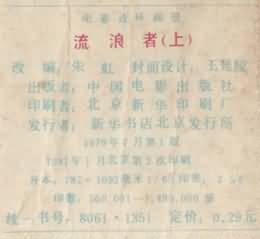 电影连环画册
流浪者(上)
改编:朱虹 封面设计:王
出版者:中国电影出版社
印刷者:北京新华印刷厂
发行者:新华书店北京发行所
1979年7月第1版
1月北京第2次印刷
开本:787×1092毫米1/6 印张:2
印数:500,001—
统一书号:8061·1351 定价:0.29元